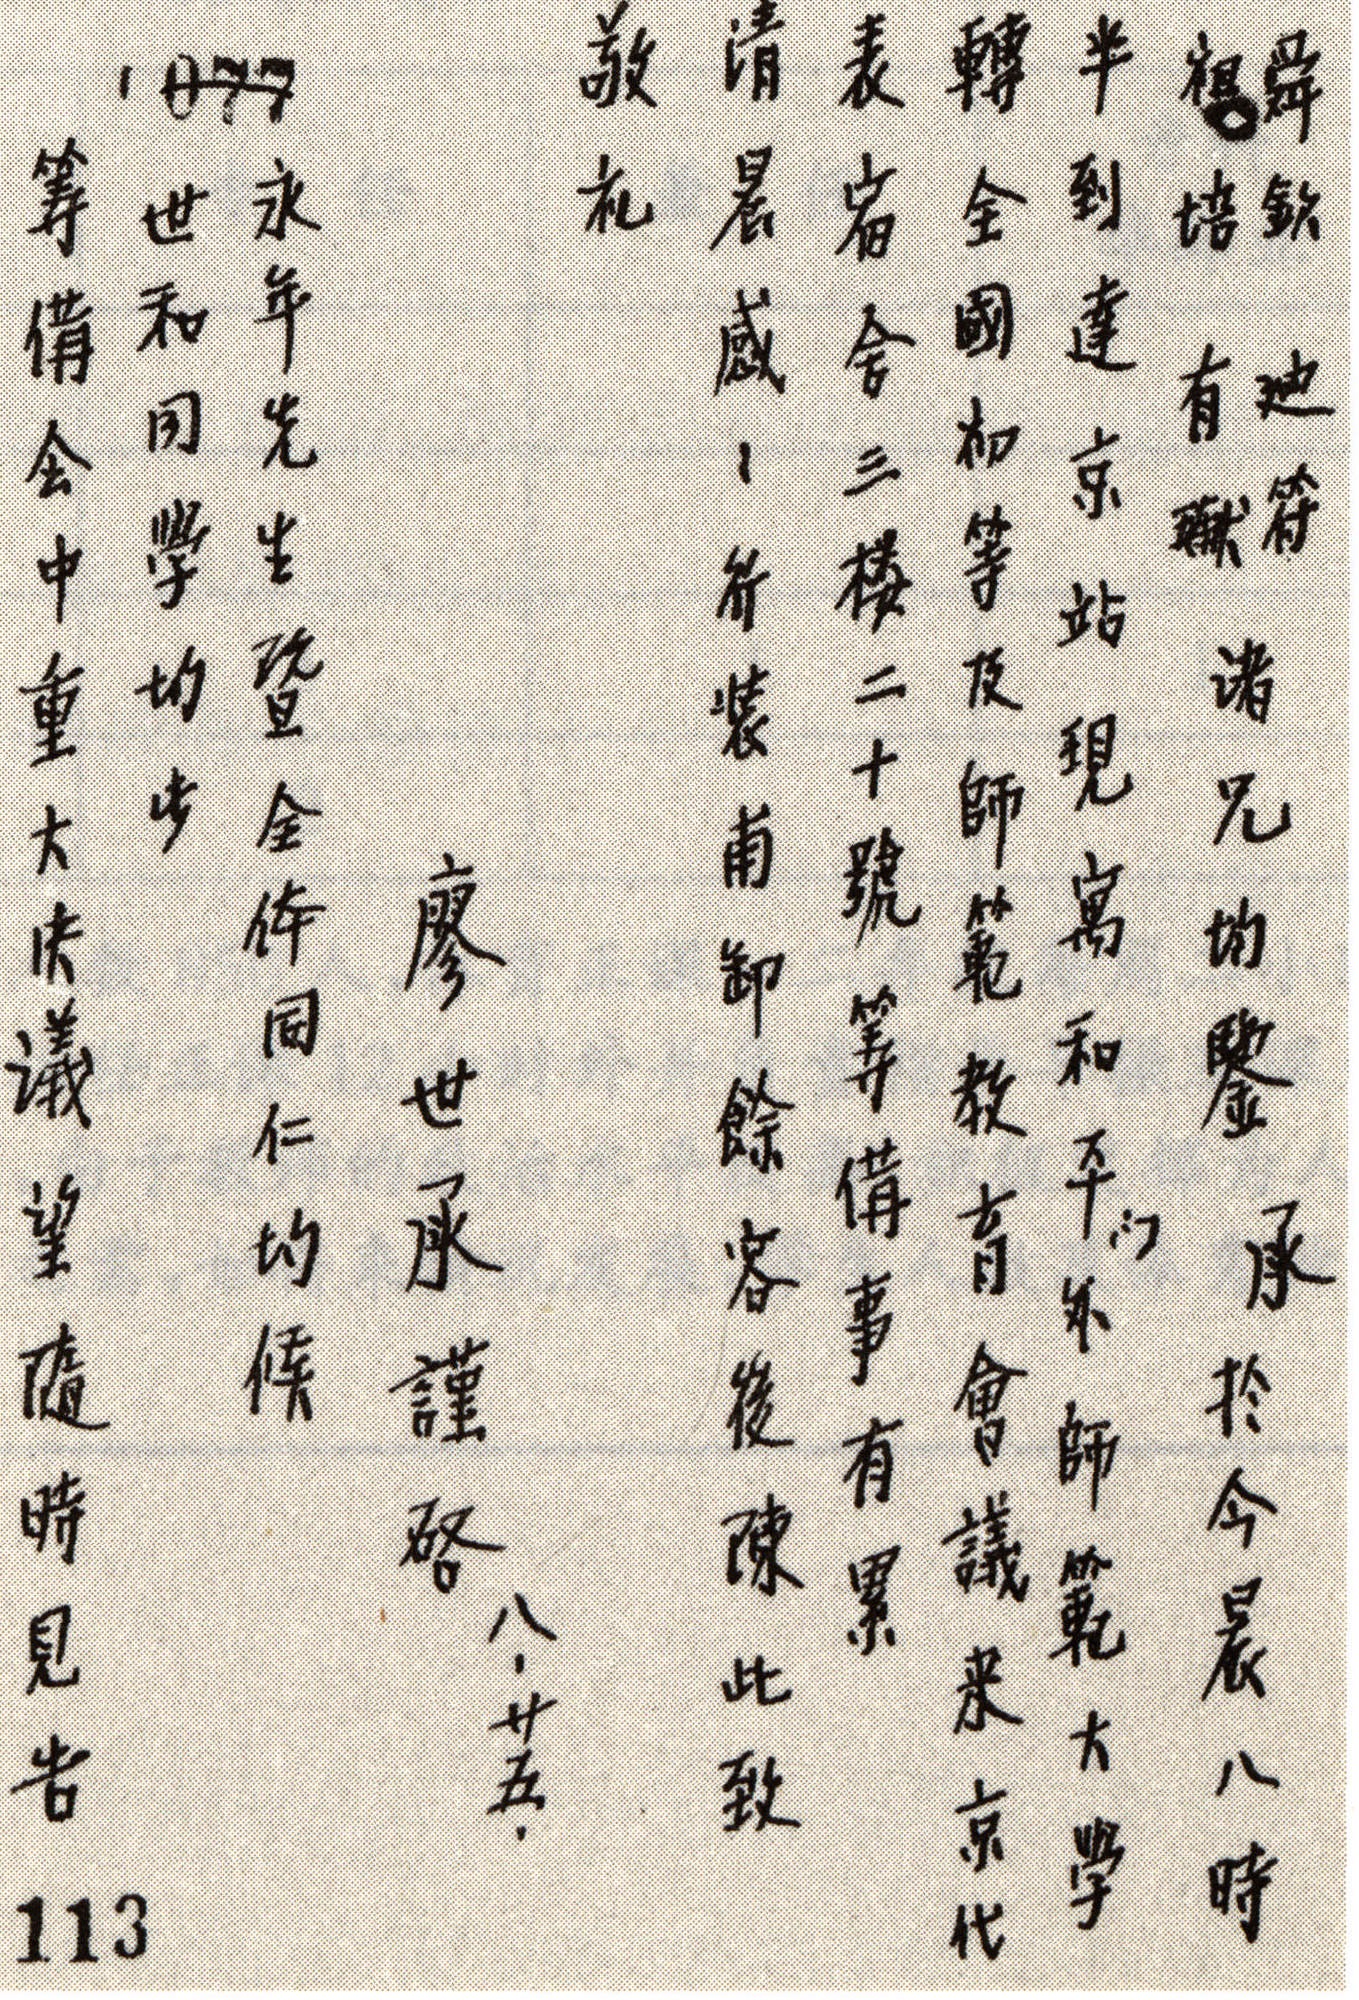 舜欽 迪符
祖培 有瓛 諸兄均鑒 承於今晨八時
半到達京站現寓和平门外師範大學
轉全國初等及師範教育會議來京代
表宿舍三楼二十號筹備事有累
清晨感〻行裝甫卸餘容後陳此致
敬礼
廖世承謹啓
八·廿五·
永年先生暨全体同仁均候
世和同學均此
筹備会中重大决议望隨時見告
077
113